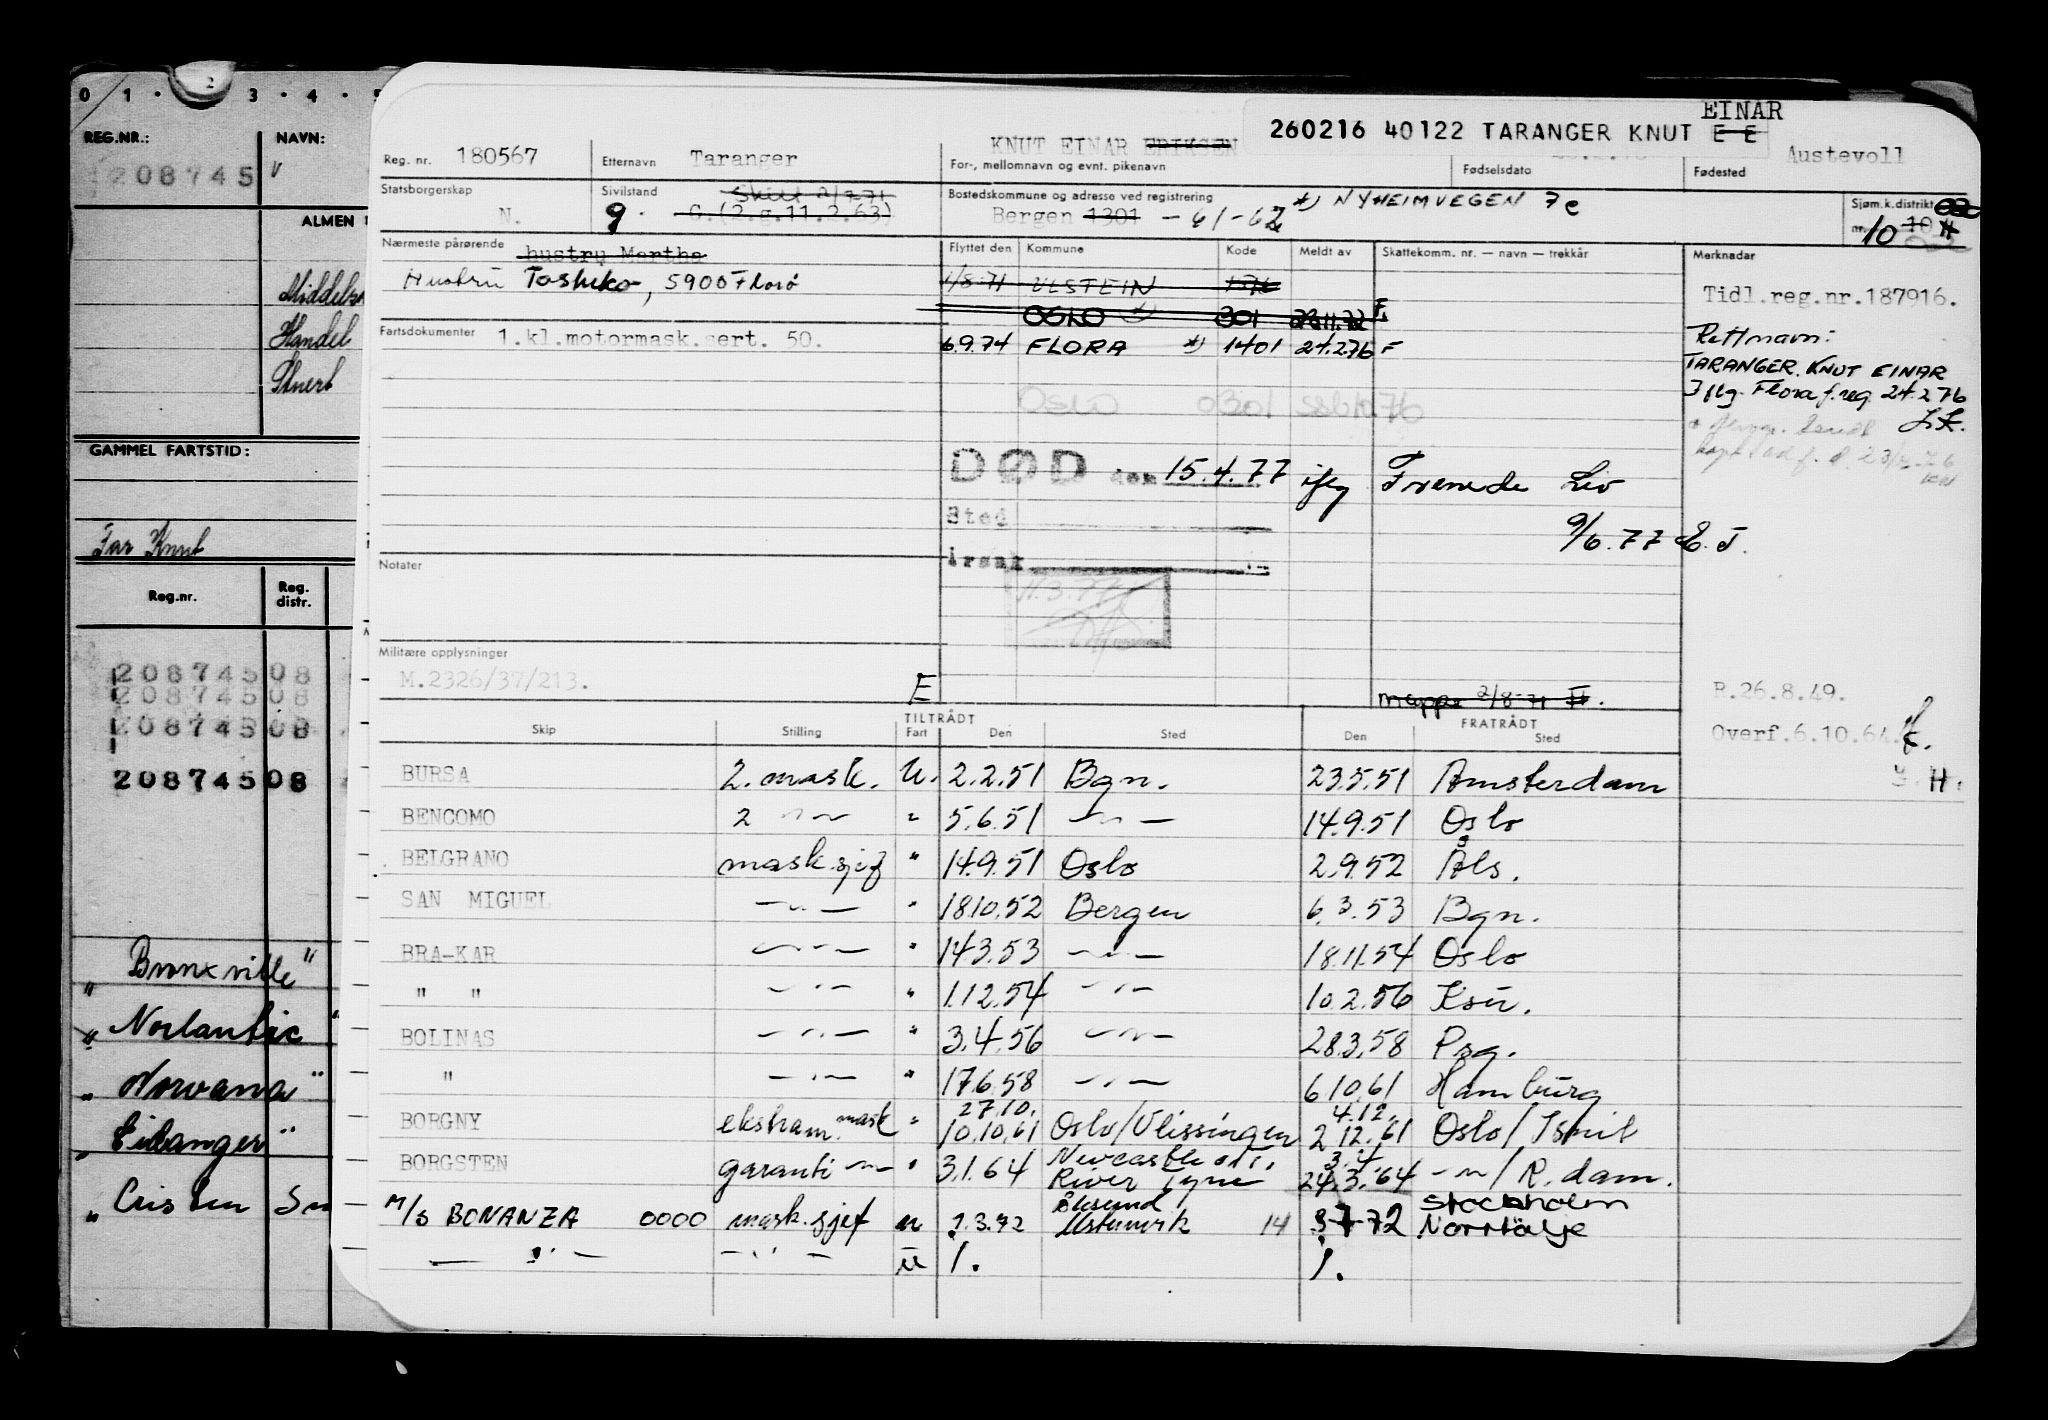 0 1 · 2 3 · 4 · 5
REG.NR.: NAVN:
208745
ALMEN
Handel
GAMMEL FARTSTID:
Far Knut
Reg.nr. Reg. distr.
20874508
20874508
20874508
20874508
" Bronxville "
" Norlantic "
" Norvana "
" Eidanger "
"
EINAR
260216 40122 TARANGER KNUT E E
Reg. nr. 180567
Etternavn Taranger
KNUT EINAR ERIKSEN
For-, mellomnavn og evnt. pikenavn
Fødselsdato
Austevoll
Fødested
Statsborgerskap
N.
Sivilstand
Skilt 2/7 71
g. G.(2.g.11.2.63)
Bostedskommune og adresse ved registrering
Bergen 1301 - 61-62
*) NYHEIMVEGEN 7c
Sjøm.k.distrikt
nr. 10
Nærmeste pårørende
hustru Martha
Hustru Toshiko, 5900 Florø
Flyttet den Kommune Kode Meldt av Skattekomm. nr. — navn — trekkår
1/8-71 ULSTEIN
OSLO 301 28.11.72 F.
6.9.74 FLORA *) 1401 24.2.76 F
OSLO 0301
Fartsdokumenter 1.kl.motormask.sert. 50.
Merknader
Tidl.reg.nr.187916.
Rettnavn:
TARANGER. KNUT EINAR
Iflg. Flora f.reg. 24.2 76
DØD den 15.4.77 iflg Fremde Liv
9/6.77 E.T.
Sted
Årsak
11.3.77
Notater
Militære opplysninger
M.2326/37/213.
E
mappe 2/8-71
R.26.8.49.
Overf.6.10.64.
TILTRÅDT FRATRÅDT
Skip Stilling Fart Den Sted Den Sted
BURSA 2. mask. U. 2.2.51 Bgn. 23.5.51 Amsterdam
BENCOMO 2 -"- " 5.6.51 -"- 14.9.51 Oslo
BELGRANO mask.sjef " 14.9.51 Oslo 2.9.52 Åls.
SAN MIGUEL -"- " 18.10.52 Bergen 6.3.53 Bgn.
BRA-KAR -"- " 14.3.53 -"- 18.11.54 Oslo
" " -"- " 1.12.54 -"- 10.2.56 Ksu.
BOLINAS -"- " 3.4.56 -"- 28.3.58 Psg.
" -"- " 17.6.58 -"- 6.10.61 Hamburg
BORGNY ekstram.mask " 27.10. 10.10.61 Oslo/Vlissingen 4.12. 2.12.61 Oslo/Ismit
BORGSTEN garanti -"- " 3.1.64 Newcastle River Tyne 3.4. 24.3.64 -"-/R.dam.
M/S BONANZA 0000 mask.sjef u 2.3.72 Ålesund Ulsteinvik 14 8-7-72 Stockholm Norrtälje
-"- -"- u 1. 1.